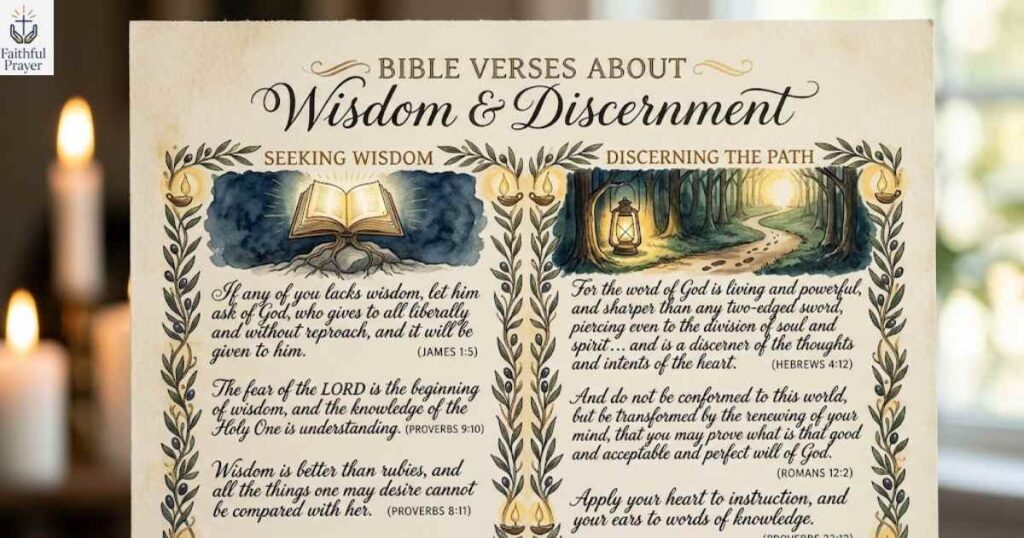 Faithful
Prayer
BIBLE VERSES ABOUT
Wisdom & Discernment
SEEKING WISDOM
If any of you lacks wisdom, let him
ask of God, who gives to all liberally
and without reproach, and it will be
given to him. (JAMES 1:5)
The fear of the LORD is the beginning
of wisdom, and the knowledge of the
Holy One is understanding. (PROVERBS 9:10)
Wisdom is better than rubies, and
all the things one may desire cannot
be compared with her. (PROVERBS 8:11)
DISCERNING THE PATH
For the word of God is living and powerful,
and sharper than any two-edged sword,
piercing even to the division of soul and
spirit... and is a discerner of the thoughts
and intents of the heart. (HEBREWS 4:12)
And do not be conformed to this world,
but be transformed by the renewing of your
mind, that you may prove what is that good
and acceptable and perfect will of God.
(ROMANS 12:2)
Apply your heart to instruction, and
your ears to words of knowledge.